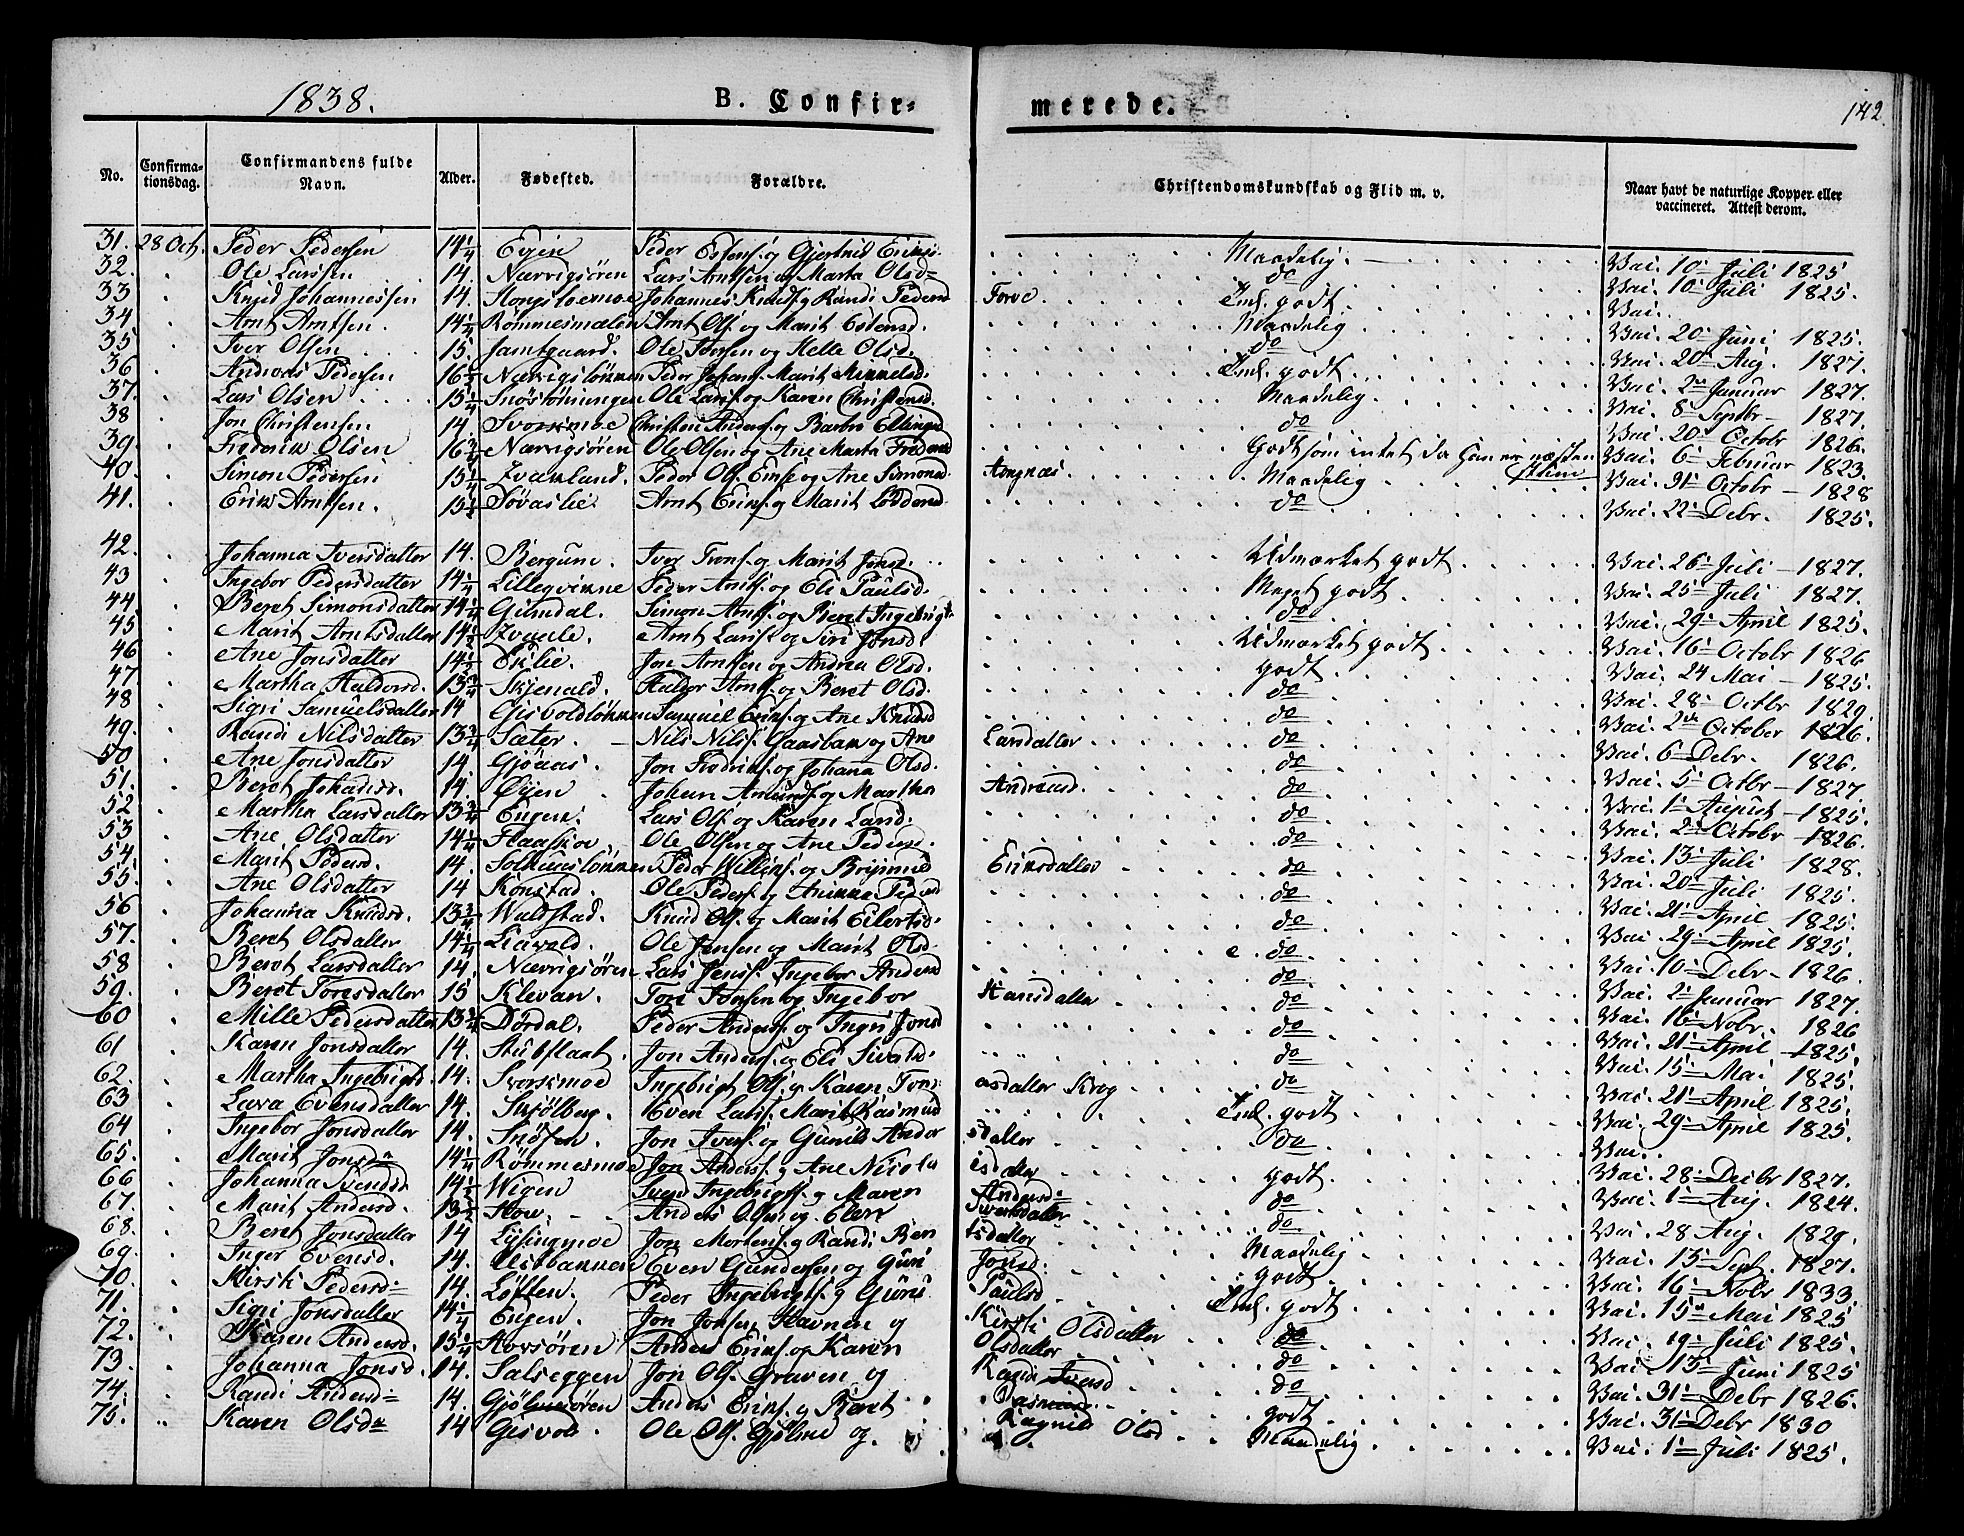 1838. B. Confir= merede. 142.
No. Confirmationsdag. Confirmandens fulde Navn. Alder. Fødested. Forældre. Christendomskundskab og Flid m. v. Naar havt de naturlige Kopper eller vaccineret. Attest derom.
31. 28 Oct. Peder Pedersen 14 1/4 Evjen Peder Estens. og Gjertrud Eriks. Maadelig. Vac. 10 Juli 1825.
32. Ole Larssen 14. Nærvigsören Lars Arntsen og Marta Olsd. do Vac. 10 Juli 1825.
33 Knud Johannessen 14. Johannes Knuds. og Randi Peders Torve. Tml. godt. Vac.
34 Arnt Arntsen. 14 1/2 Römmesmælen Arnt Ols. og Marit Estensd. Maadelig Vac. 20 Juni 1825.
35 Iver Olsen 15. Jamtgaard. Ole Jonsen og Kelle Olsd. do Vac. 20 Aug. 1827.
36 Andreas Pedersen 16 1/2 Nærvigslönnen Peder Johans. Marit Mikkelsd. Tml. godt. Vac. 2 Januar 1827.
37. Lars Olsen 15 1/4 Ole Lars. og Karen Christensd. Maadelig. Vac. 8 Septbr 1827.
38 Jon Christensen 14. Svorkmoe Christen Anders. og Barbro Ellingsd do Vac. 20 Octobr 1826.
39. Frederik Olsen 16 3/4 Nærvigsören Ole Olsen og Ane Marta Frederiks Godt som intet da han er næsten stum Vac. 6 Februar 1823.
40. Simon Pedersen 15 1/4 Kvamland. Peder Ols. og Ane Simonsd. Aangnæs. Maadelig Vac. 31 Octobr 1828
41. Erik Arntsen. 15 1/2 Søvaslie. Arnt Eriks. og Marit do Vac. 22 Debr. 1825.
42. Johanna Iversdatter 14. Bergune. Iver Tron. og Marit Jonsd. Udmærket godt. Vac. 26 Juli 1827.
43 Ingebor Pedersdatter 14 1/4 Lillegvinne Peder Arnts. og Eli Paulsd. Meget godt. Vac. 25 Juli 1827.
44 Beret Simonsdatter 14 1/4 Gumdal. Simon Arnts. og Beret Ingebrigts do Vac. 29 April 1825.
45 Marit Arntsdatter 14 1/2 Kvaale. Arnt Lars. og Siri Jonsd. Udmærket godt. Vac. 16 Octobr 1826
46 Ane Jonsdatter 14 1/2 Eielie. Jon Arntsen og Andrea Olsd. godt. Vac. 24 Mai 1825.
47 Martha Haldorsd. 13 3/4 Skjenald. Haldor Arnt. og Beret Olsd. do Vac. 28 Octbr 1829.
48 Sigri Samuelsdatter 14 Gisvoldlönnen Samuel Eriks. og Ane Knudsd do Vac. 2 October 1826.
49. Randi Nilsdatter 13 3/4 Sæter. Nils Nils. Gaasbak og Ane Larsdatter do Vac. 6 Debr. 1826.
50 Ane Jonsdatter 14 Gjöaas. Jon Fredriks. og Johana Olsd. do Vac. 5 Octbr 1827.
51. Beret Johansd. 14. Öyen Johan Amunds. og Martha Andersd. do Vac. 1 August 1825.
52 Martha Larsdatter 13 3/4 Engen. Lars Ols. og Karen Land: do Vac. 2 Octobr 1826.
53 Ane Olsdatter 14 1/4 Flaaskov Ole Olsen og Ane Pedersd. do Vac. 13 Juli 1828.
54. Marit Pedersd. 14. Solhuuslönnen Peder Willins. og Brynnild Eriksdatter do Vac. 20 Juli 1825.
55. Ane Olsdatter 14 Konstad. Ole Peders. og Aninna Peders do Vac. 21 April 1825.
56 Johanna Knudsd. 13 3/4 Wulstad. Knud Ols. og Marit Eilertsd. do Vac. 29 April 1825.
57. Beret Olsdatter 14 1/4 Liavold. Ole Jensen og Marit Olsd. do Vac. 10 Debr 1826.
58 Beret Larsdatter 14. Nærvigsören Lars Jens. Ingebor Anders do Vac. 2 Januar 1827.
59. Beret Toresdatter 15 Klevan. Tore Jonsen og Ingebor Hansdatter do Vac. 16 Nobr. 1826
60 Mille Pedersdatter 13 3/4 Dördal. Peder Anders. og Ingri Jonsd do Vac. 21 April 1825.
61 Karen Jonsdatter 14. Stubflaat. Jon Anders. og Eli Sivertsd. do Vac. 15 Mai 1825.
62. Martha Ingebrigts. 14. Svorkmoe Ingebrigt Ols. og Karen Ton asdatter Krog do Vac. 21 April 1825.
63 Lava Evensdatter 14. Snjölberg. Even Lars. Marit Rasmud Tml. godt Vac. 29 April 1825.
64 Ingebor Jonsdatter 14. Snösen. Jon Ivers. og Gunild Ander sdatter do Vac.
65. Marit Jonsd 14 1/4 Römmesmoe Jon Anders. og Ane Nicola isdatter godt Vac. 28 Decbr 1827.
66 Johanna Svendsd 14 1/2 Wigen Svend Ingebrigts. og Maren Andersd do Vac. 1 Aug. 1824.
67. Marit Andersd. 13 1/2 Hov. Anders Olsen og Ellen Sivertsdatter do Vac. 28 Aug. 1829.
68. Beret Jonsdatter 14 Lysingmoe Jon Mortens. og Randi Ben tsdatter Maadelig Vac. 13 Sept. 1827.
69. Inger Evensd. 14. Even Gundersen og Guri Jonsd. godt. Vac. 16 Nobr 1833
70. Kirsti Pedersd. 14. Löften. Peder Ingebrigts. og Guru Paulsd Tml. godt Vac. 15 Mai 1825
71. Sigri Jonsdatter 14 1/4 Engen. Jon Jonsen Havnen og Kirsti Olsdatter do Vac. 19 Juli 1825
72. Karen Andersd. 15 1/4 Hovsören Anders Eriks. og Karen Olsdatter do Vac. 13 Juni 1825
73. Johanna Jonsd. 14. Salseggen Jon Ols. Graven og Randi Iversd do Vac. 31 Debr 1826.
74. Randi Andersd 14. Gjölmesören Anders Eriks. og Beret Rasmusd. godt Vac. 31 Debr 1830
75. Karen Olsd 14 Gisvold. Ole Ols. Gjölme og Ragnild Olsd Maadelig Vac. 1 Juli 1825.